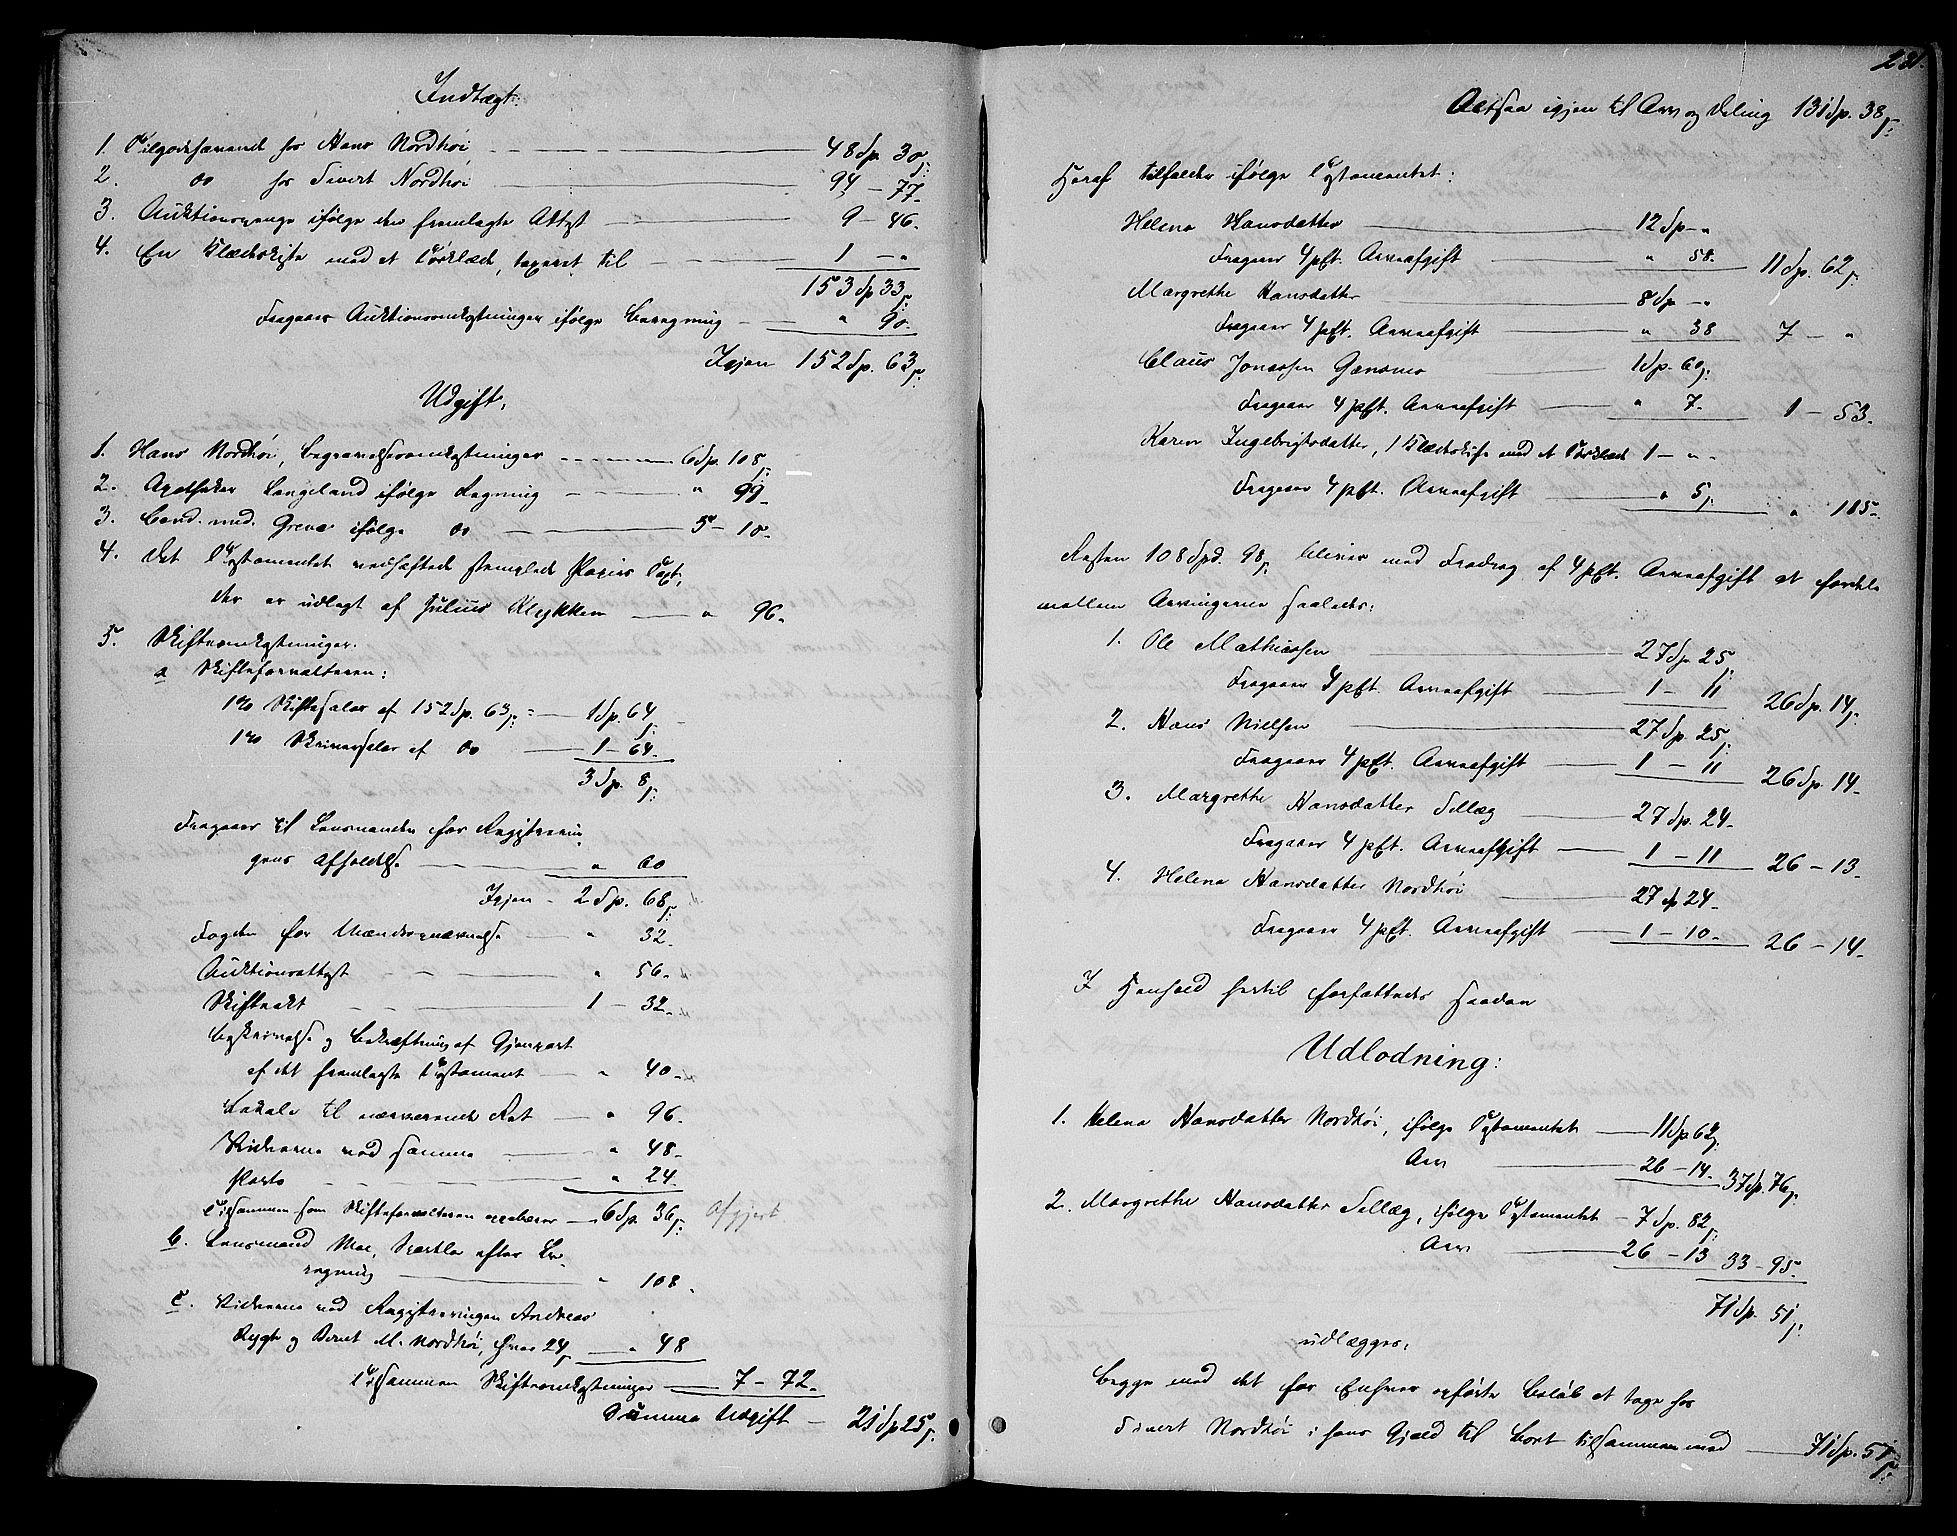 Indtægt:
1. Tilgodehavende hos Hans Nordhøi 48 Sp. 30 s:
2. do hos Sivert Nordhøi 94 - 77 -
3. Auktionspenge ifølge den fremlagte Attest 9 - 46 -
4. En Klædeskiste med et Tørklæde, taxeret til 1 - "
153 Sp 33 s:
Fragaaer Auktionsomkostninger ifølge Beregning " 90 -
Igjen 152 Sp. 63 s:
Udgift.
1. Hans Nordhøi, Begravelsesomkostninger 6 Sp. 108 s:
2. Apotheker Langeland ifølge Regning " 99 -
3. Cand. med. Greve ifølge do 5 - 10 -
4. Det Testamentet vedhæftede stemplede Papirs Taxt,
der er udlagt af Julius Klykken " 96 -
5. Skifteomkostninger:
a Skifteforvalteren:
1 % Skiftesalær af 152 Sp. 63 s: 1 Sp. 64 s:
1 % Skriversalær af do 1 - 64 -
3 Sp. 8 s:
Fragaaer til Lensmanden for Registrerin-
gens Afholdelse " 60
Igjen 2 Sp. 68 s:
Fogden for Mændsopnævnelse " 32 -
Auktionsattest " 56 -
Skifteakt 1 - 32 -
Beskrivelse og Bekræftning af Gjenpart
af det fremlagte Testament " 40 -
Lokale til nærværende Ret " 96 -
Vidnerne ved samme " 48 -
Porto " 24 -
Tilsammen som Skifteforvalteren oppebærer 6 Sp. 36 s: Afgjort
b. Lensmand Moe, Sportler efter Be-
regning " 108 -
c. Vidnerne ved Registreringen Andreas
Rygh og Bernt M. Nordhøi, hver 24 s " 48
Tilsammen Skifteomkostninger 7 - 72 -
Summa Udgift 21 Sp 25 s:
281.
Altsaa igjen til Arv og Deling 131 Sp. 38 s:
Heraf tilfalder ifølge Testamentet:
Helena Hansdatter 12 Sp - "
Fragaaer 4 pCt. Arveafgift " 58 - 11 Sp. 62 s:
Margrethe Hansdatter 8 Sp - "
Fragaaer 4 pCt. Arveafgift " 38 7 - "
Claus Jonassen Gjensmo 1 Sp. 60 s:
Fragaaer 4 pCt. Arveafgift " 7 - 1 - 53 -
Karen Ingebrigtsdatter, 1 Klædeskiste med et Tørklæde 1 - " -
Fragaaer 4 pCt. Arveafgift " 5 s: " 115 -
Resten 108 Spd. 98 s: bliver med Fradrag af 4 pCt. Arveafgift at fordele
mellem Arvingerne saaledes:
1. Ole Mathiassen 27 Sp. 25 s:
Fragaaer 4 pCt. Arveafgift 1 - 11 26 Sp. 14 s:
2. Hans Nielsen 27 Sp. 25 s:
Fragaaer 4 pCt. Arveafgift 1 - 11 26 Sp. 14 -
3. Margrethe Hansdatter Selleg 27 Sp. 24 -
Fragaaer 4 pCt. Arveafgift 1 - 11 26 - 13 -
4. Helena Hansdatter Nordhøi 27 Sp 24 -
Fragaaer 4 pCt. Arveafgift 1 - 10 - 26 - 14 -
I Henhold hertil forfattedes saadan
Udlodning:
1. Helena Hansdatter Nordhøi, ifølge Testamentet 11 Sp 62 s:
Arv 26 - 14 - 37 Sp. 76 s:
2. Margrethe Hansdatter Selleg, ifølge Testamentet 7 Sp. 82 s:
Arv 26 - 13 33 - 95 -
71 Sp. 51 s:
udlægges:
Begge med det for Enhver opførte Beløb at tage hos
Sivert Nordhøi i hans Gjæld til Boet tilsammen med 71 Sp. 51 s: